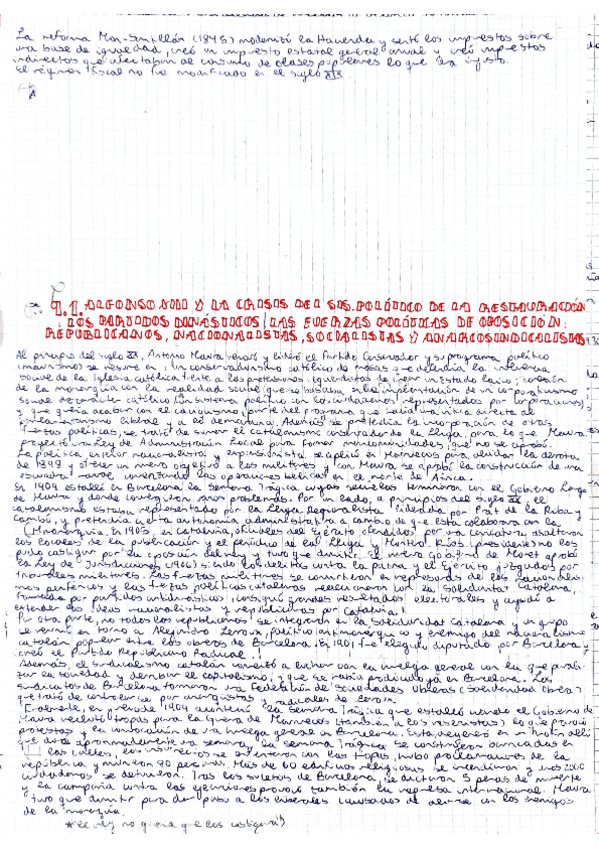 La reforma Mon-Santillán (1845) modernizó la Hacienda y sentó los impuestos sobre
una base de igualdad, creó un impuesto estatal general anual y creó impuestos
indirectos que afectaban al consumo de clases populares lo que era injusto.
El régimen fiscal no fue modificado en el siglo XIX
9.1. ALFONSO XIII Y LA CRISIS DEL SIS. POLÍTICO DE LA RESTAURACIÓN
: LOS PARTIDOS DINÁSTICOS/LAS FUERZAS POLÍTICAS DE OPOSICIÓN:
REPUBLICANOS, NACIONALISTAS, SOCIALISTAS Y ANARCOSINDICALISTAS
Al principio del siglo XX, Antonio Maura renovó y lideró el Partido Conservador y su programa político
(maurismo) se resume en: un conservadurismo católico de masas que defendía la influencia
social de la Iglesia católica frente a las pretensiones izquierdistas de crear un Estado laico; conexión
de la monarquía con la realidad social que se basaba en la implantación de un corporativismo
social de carácter católico (un sistema político con los ciudadanos representados por corporaciones)
y que quería acabar con el caciquismo; parte del programa que hacía una crítica directa al
parlamentarismo liberal y a la democracia. Además se pretendía la incorporación de otras
fuerzas políticas, se trató de sumar el catalanismo conservador de la Lliga, para lo que Maura
proyectó una Ley de Administración Local para formar mancomunidades, que no se aprobó.
La política exterior nacionalista y expansionista se aplicó en Marruecos para olvidar la derrota
de 1898 y ofrecer un nuevo objetivo a los militares y con Maura se aprobó la construcción de una
escuadra naval, comenzando las operaciones bélicas en el norte de África.
En 1909 estalló en Barcelona la Semana Trágica cuyas secuelas terminaron con el Gobierno Largo
de Maura y donde convergieron varios problemas. Por un lado, a principios del siglo XX el
catalanismo estaba representado por la Lliga Regionalista liderada por Prat de la Riba y
Cambó, y pretendía cierta autonomía administrativa a cambio de que esta colaborara con la
Monarquía. En 1905, en Cataluña, oficiales del Ejército ofendidos por una caricatura asaltaron
los locales de la publicación y el periódico de la Lliga y Montero Ríos (presidente) no los
pudo castigar por la oposición del rey y tuvo que dimitir. El nuevo Gobierno de Moret aprobó
la Ley de Jurisdicciones (1906) siendo los delitos contra la patria y el Ejército juzgados por
tribunales militares. Las fuerzas militares se convirtieron en represoras de los nacionalis-
mos periféricos y las fuerzas políticas catalanas reaccionaron con la Solidaritat Catalana,
formada por partidos antidinásticos, consiguió grandes resultados electorales y ayudó a
extender las ideas nacionalistas y republicanas por Cataluña.
Por otra parte, no todos los republicanos se integraron en la Solidaridad Catalana y un grupo
se reunió en torno a Alejandro Lerroux, político antimonárquico y enemigo del nacionalismo
catalán popular entre los obreros de Barcelona. En 1901 fue elegido diputado por Barcelona y
creó el Partido Republicano Radical.
Además, el sindicalismo catalán comenzó a luchar con la huelga general con la que parali-
zar la sociedad y derribar el capitalismo, y que se había producido ya en Barcelona. Los
sindicatos de Barcelona formaron una Federación de Sociedades Obreras (Solidaridad Obrera)
que trató de controlar por anarquistas y radicales de Lerroux.
Finalmente, en verano de 1909 aconteció la Semana Trágica que estalló cuando el Gobierno de
Maura reclutó tropas para la Guerra de Marruecos (también a los reservistas) lo que provocó
protestas y la convocación de una huelga general en Barcelona. Esta degeneró en un motín
que duró aproximadamente una semana: Semana Trágica. Se construyeron barricadas en
las calles, los insurrectos se enfrentaron con las tropas, hubo proclamaciones de la
república y murieron 90 personas. Más de 60 edificios religiosos se incendiaron y unos 2000
ciudadanos se detuvieron. Tras los sucesos de Barcelona, se dictaron 5 penas de muerte
y la campaña contra las ejecuciones provocó también la repulsa internacional. Maura
tuvo que dimitir para dar paso a los liberales acusados de aliarse con los enemigos
de la monarquía.
*(el rey no quería que los castigara)